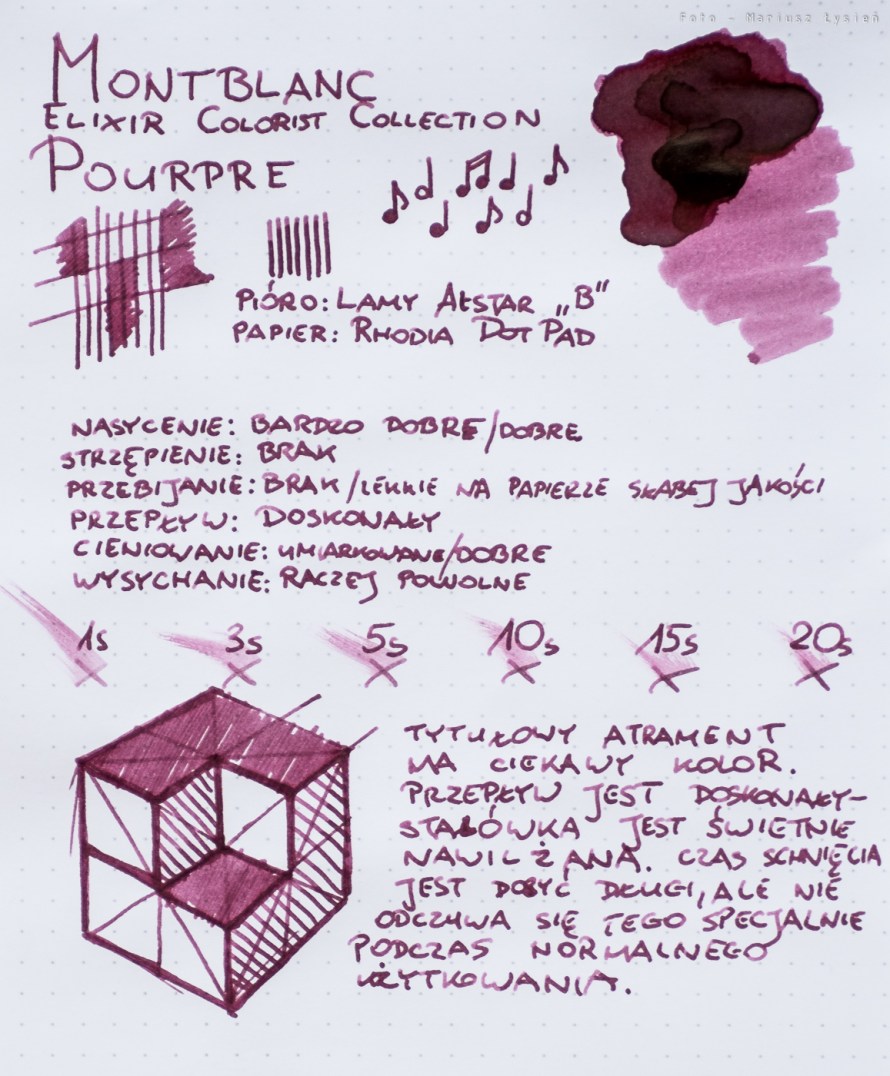 Foto - Mariusz Łysień
MONTBLANC
ELIXIR COLORIST COLLECTION
POURPRE
PIÓRO: LAMY ALSTAR „B”
PAPIER: RHODIA DOT PAD
NASYCENIE: BARDZO DOBRE/DOBRE
STRZĘPIENIE: BRAK
PRZEBIJANIE: BRAK/LEKKIE NA PAPIERZE SŁABEJ JAKOŚCI
PRZEPŁYW: DOSKONAŁY
CIENIOWANIE: UMIARKOWANE/DOBRE
WYSYCHANIE: RACZEJ POWOLNE
1s 3s 5s 10s 15s 20s
TYTUŁOWY ATRAMENT
MA CIEKAWY KOLOR.
PRZEPŁYW JEST DOSKONAŁY-
STALÓWKA JEST ŚWIETNIE
NAWILŻANA. CZAS SCHNIĘCIA
JEST DOSYĆ DŁUGI, ALE NIE
ODCZUWA SIĘ TEGO SPECJALNIE
PODCZAS NORMALNEGO
UŻYTKOWANIA.